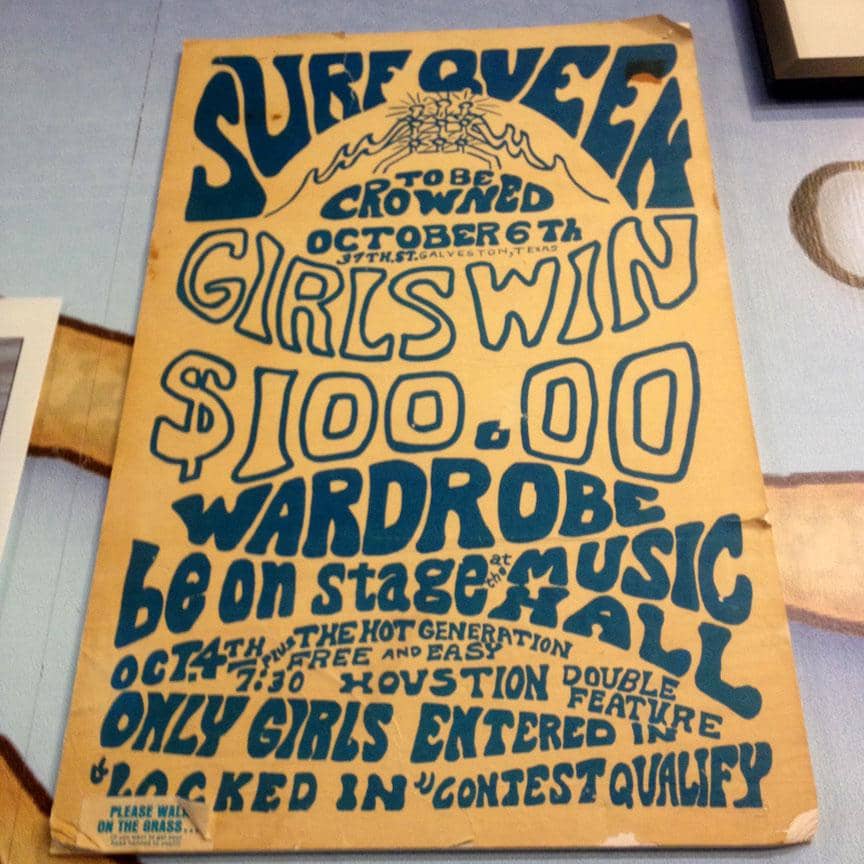 SURF QUEEN
TO BE
CROWNED
OCTOBER 6Th
37TH.ST. GALVESTON, TEXAS
GIRLS WIN
$100.00
WARDROBE
be on stage at the MUSIC HALL
OCT.4TH 7:30 PLUS THE HOT GENERATION
FREE AND EASY
HOUSTION DOUBLE FEATURE
ONLY GIRLS ENTERED IN
"LOCKED IN" CONTEST QUALIFY
PLEASE WALK
ON THE GRASS...